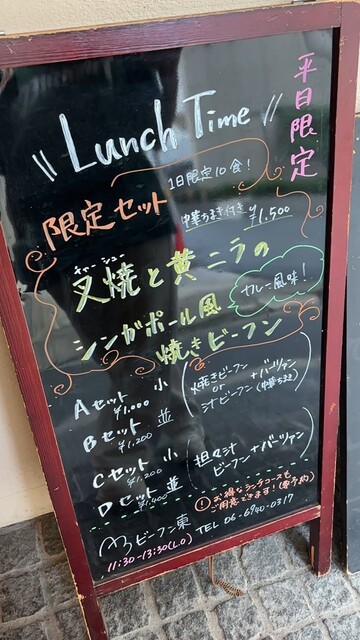 平日限定
\\ Lunch Time //
1日限定10食！
限定セット
中華ちまき付き ¥1,500
チャーシュー
叉焼と黄ニラの
カレー風味！
シンガポール風
焼きビーフン
Aセット 小
¥1,000
Bセット 並
¥1,200
焼きビーフン
or
汁ビーフン
+バーツァン
(中華ちまき)
Cセット 小
¥1,200
Dセット 並
¥1,400
担々汁
ビーフン+バーツァン
! お得なランチコースも
ご用意できます！(要予約)
ビーフン東 TEL 06-6940-0317
11:30-13:30(L.O)